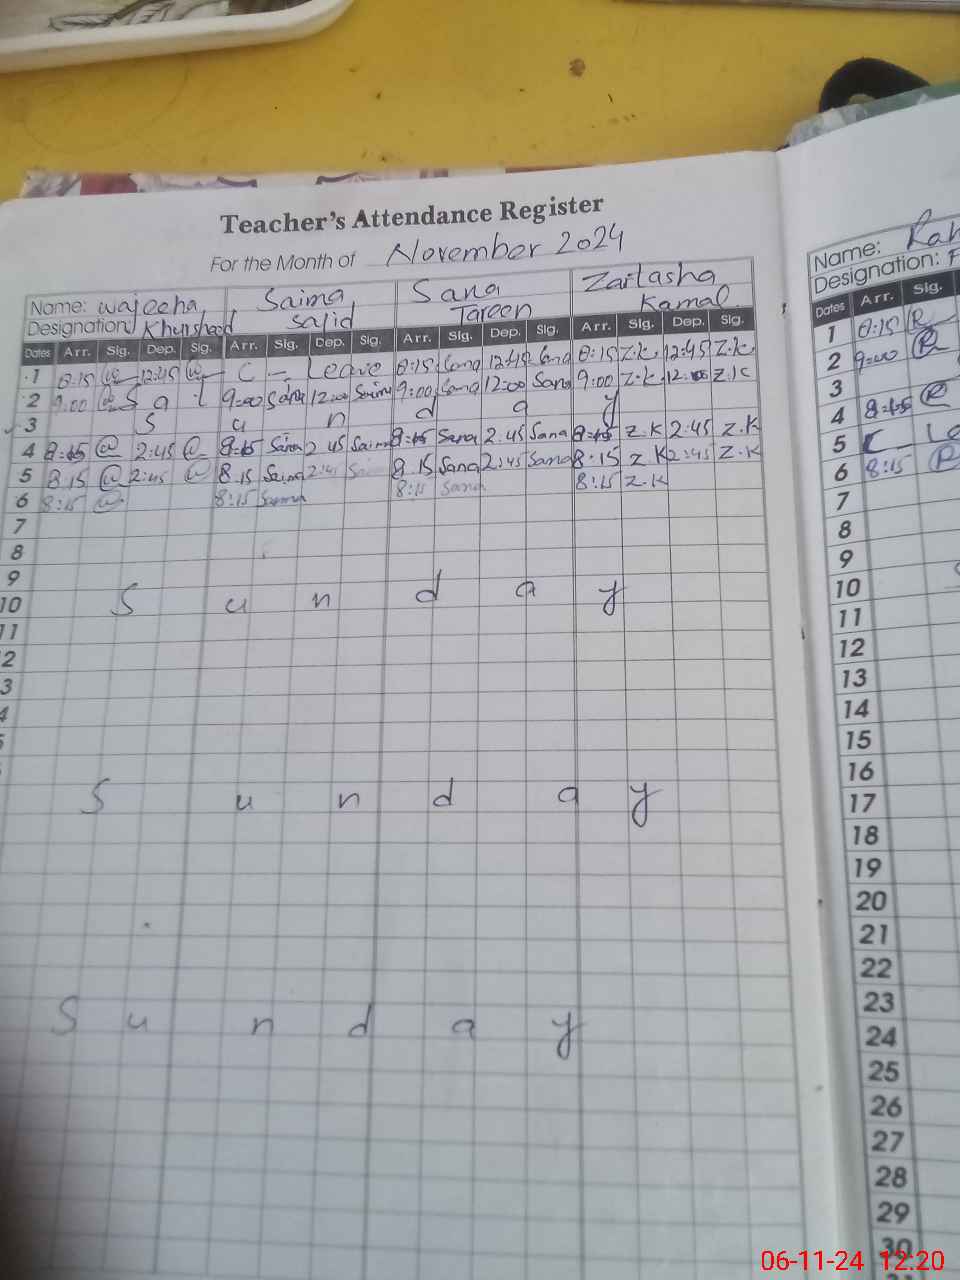 Teacher's Attendance Register
For the Month of November 2024
Name: wajeeha Saima Sana Zartasha
Designation: Khurshood Sajid Tareen Kamal
Dates Arr. Sig. Dep. Sig. Arr. Sig. Dep. Sig. Arr. Sig. Dep. Sig. Arr. Sig. Dep. Sig.
1 8:15 12:45 C - Leave 8:15 Sana 12:45 Sana 8:15 Z.K 12:45 Z.K
2 9:00 S a t 9:00 Saima 12:00 Saima 9:00 Sana 12:00 Sana 9:00 Z.K 12:00 Z.K
3 S u n d a y
4 8:15 @ 2:45 @ 8:15 Saima 2 45 Saima 8:15 Sana 2.45 Sana 8:15 Z.K 2:45 Z.K
5 8.15 @ 2:45 @ 8.15 Saima 2:45 8.15 Sana 2:45 Sana 8:15 Z K 2:45 Z.K
6 8:15 @ 8:15 Saima 8:15 Sana 8:15 Z.K
7
8
9
10 S u n d a y
11
2
3
4
S u n d a y
S u n d a y
Name:
Designation:
Dates Arr. Sig.
1 8:15 R
2 9:00 R
3
4 8:15 R
5 C
6 8:15 R
7
8
9
10
11
12
13
14
15
16
17
18
19
20
21
22
23
24
25
26
27
28
29
30
06-11-24 12:20